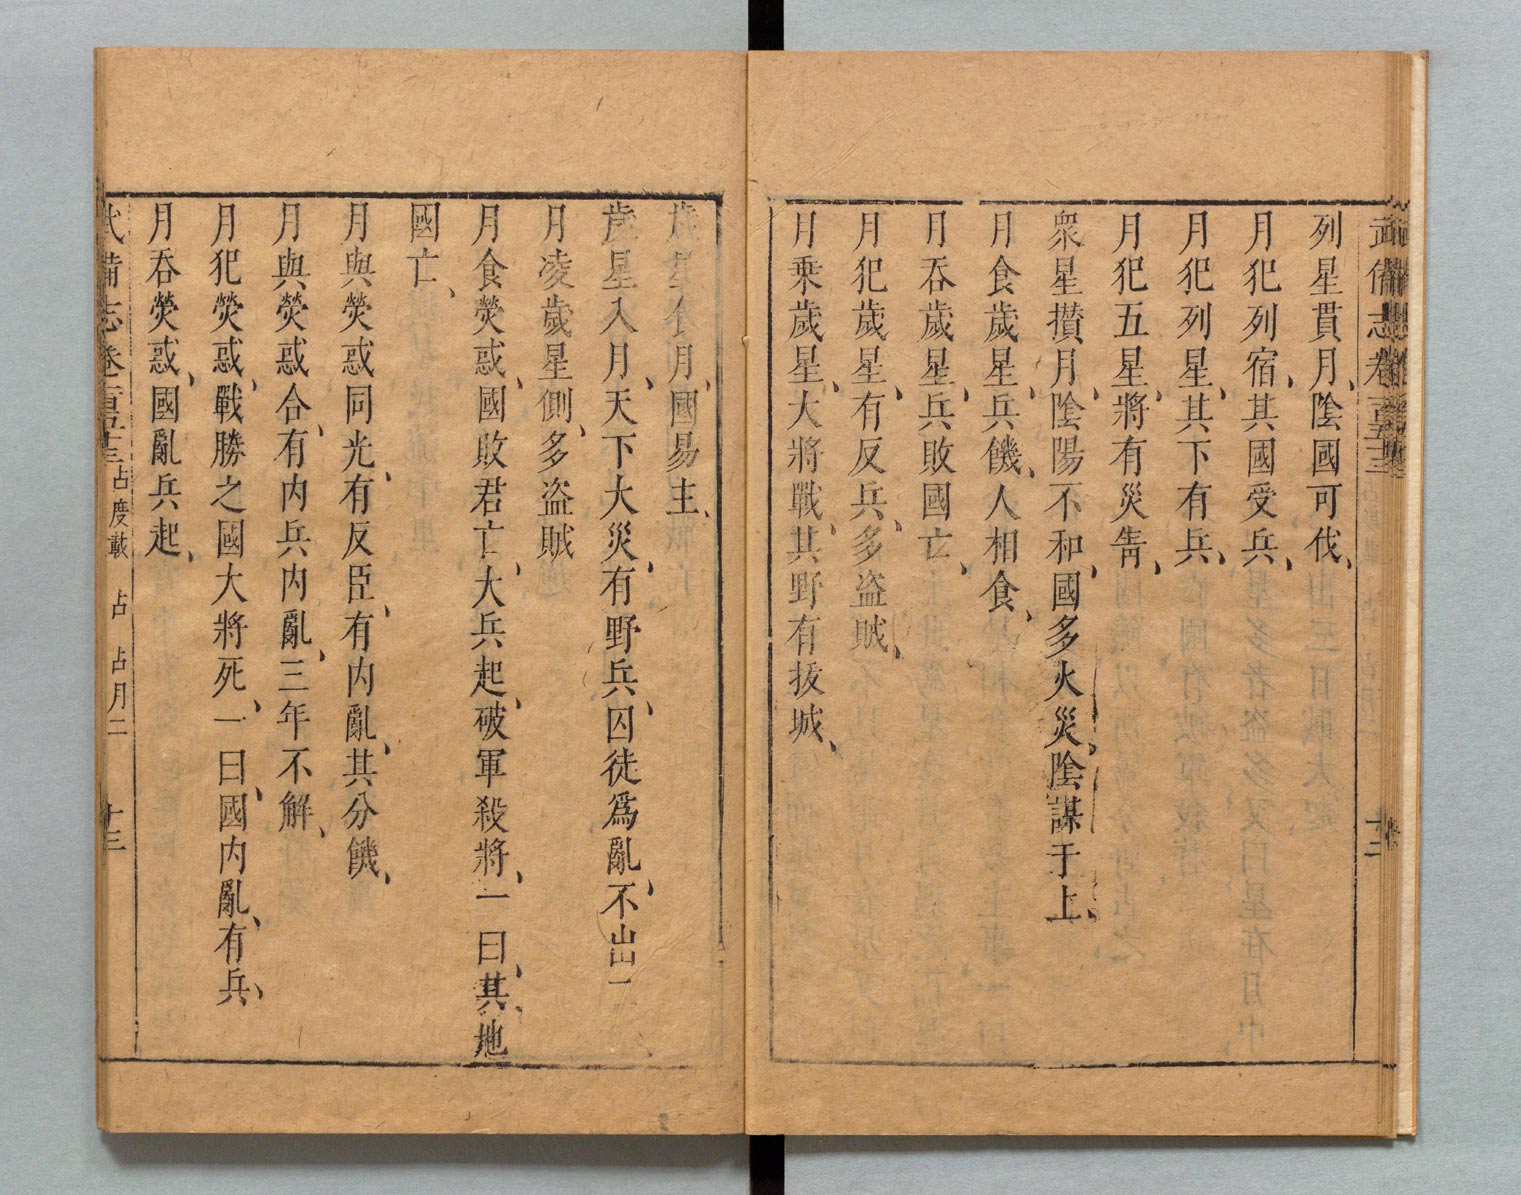 武備志卷一百五十三 十二
列星貫月、陰國可伐、
月犯列宿、其國受兵、
月犯列星、其下有兵、
月犯五星、將有災眚、
衆星攅月、陰陽不和、國多火災、陰謀于上、
月食歲星、兵饑、人相食、
月吞歲星、兵敗國亡、
月犯歲星、有反兵、多盗賊、
月乗歲星、大將戰、其野有拔城、
歲星食月、國易主、
歲星入月、天下大災、有野兵、囚徒爲亂、不出一
月凌歲星側、多盗賊
月食熒惑、國敗君亡、大兵起、破軍殺將、一曰、其地
國亡、
月與熒惑同光、有反臣、有内亂、其分饑、
月與熒惑合、有内兵内亂、三年不解、
月犯熒惑、戰勝之國大將死、一曰、國内亂、有兵、
月吞熒惑、國亂兵起、
武備志卷一百五十三 占度載 占 占月二 十三